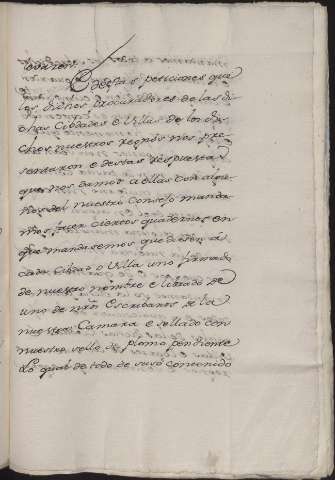 E destas peticiones que
los dichos procuradores de las di
chas Ciudades e Villas de los di
chos nuestros regnos nos pre
sentaron e destas respuestas
que nos damos a ellas con algu
nos del nuestro Consejo manda
mos facer ciertos quadernos en
que mandasemos que dieden á
cada Ciudad o Villa uno firmado
de nuestro nombre e librado de
uno de nrõs Escribanos de la
nuestra Camara e sellado con
nuestro sello de plomo pendiente
Lo qual de todo de suso contenido